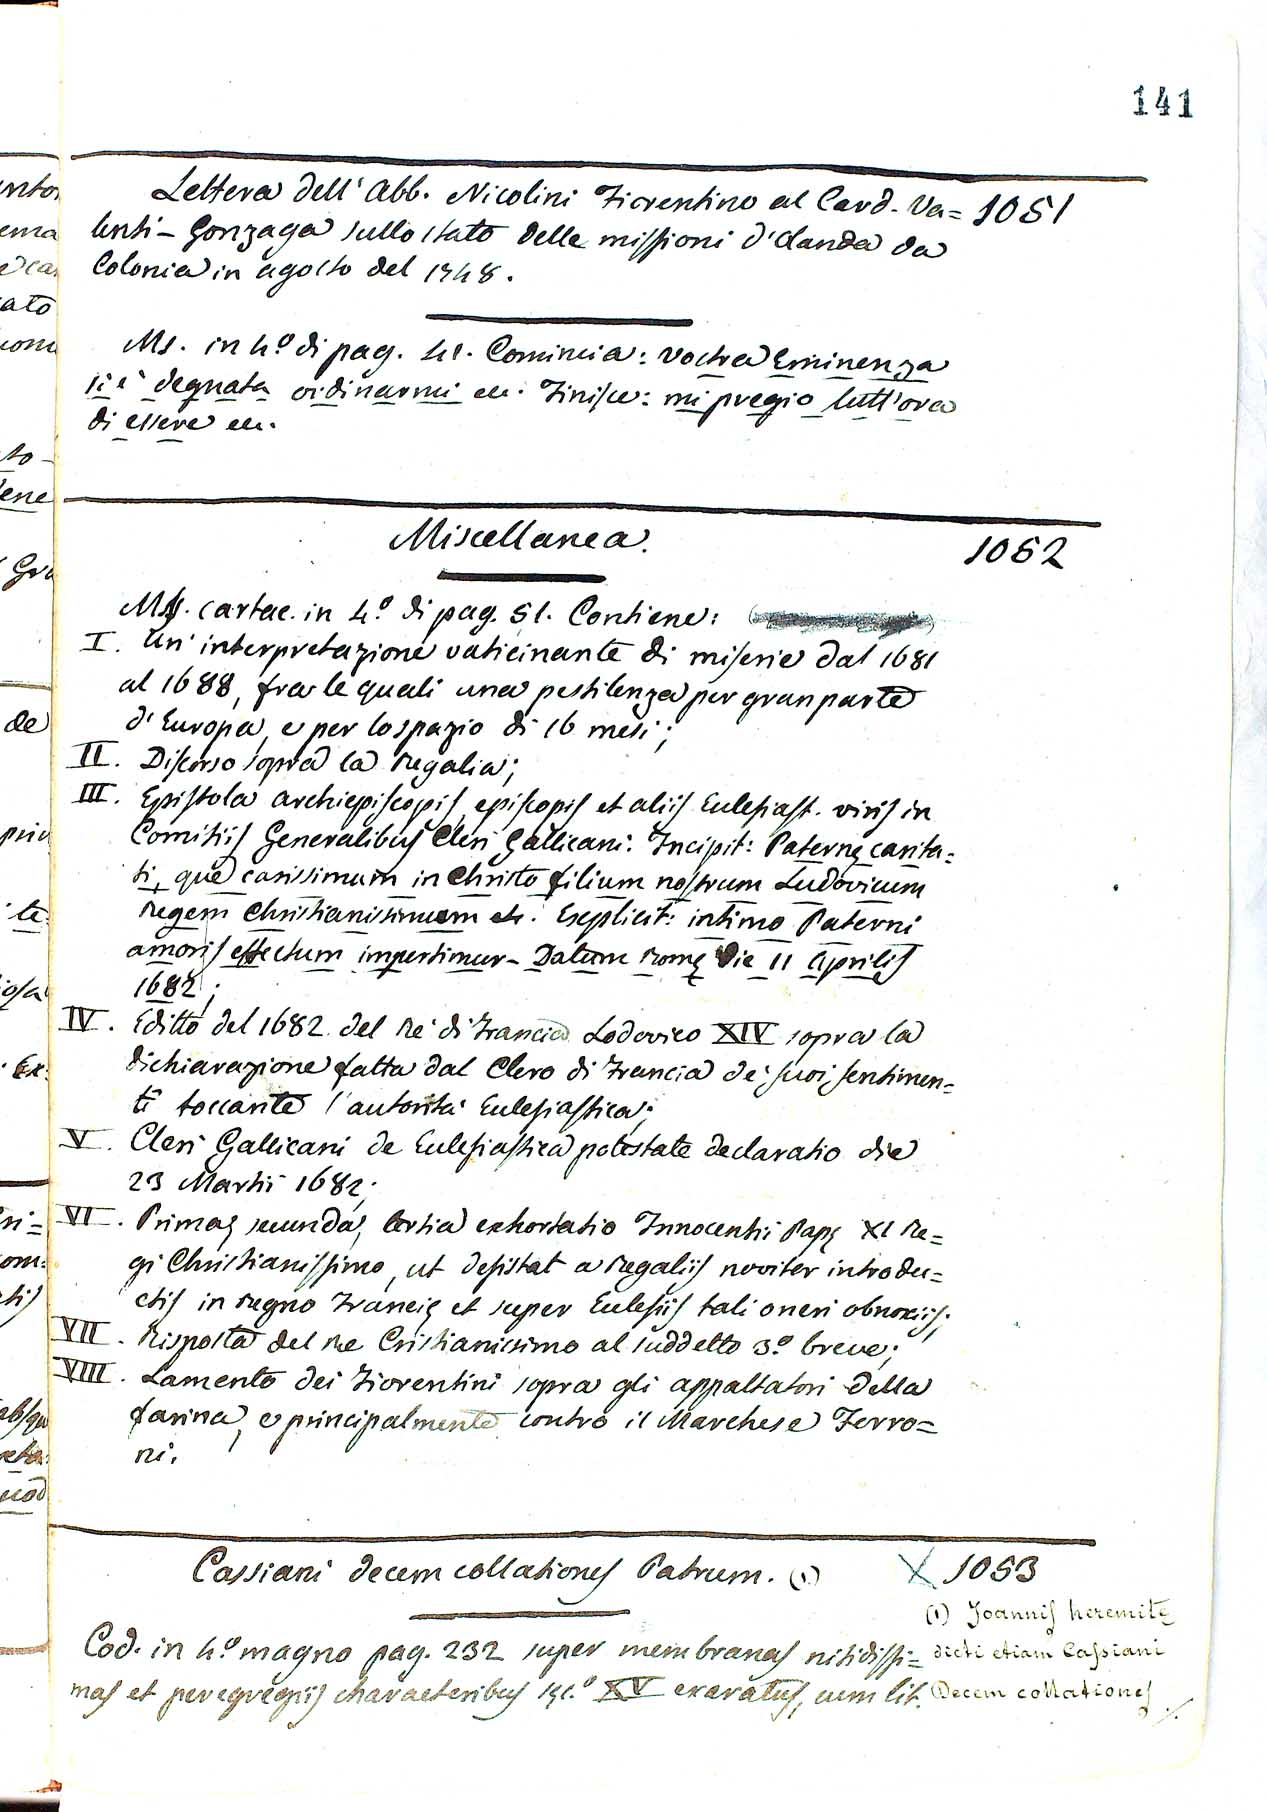 141
Lettera dell'Abb. Nicolini Fiorentino al Card. Va= 1051
lenti-Gonzaga sullo stato delle missioni d'Olanda da
Colonia in agosto del 1748.
Ms. in 4.º di pag. 41. Comincia: Vostra Eminenza
si è degnata ordinarmi ec. Finisce: mi pregio tutt'ora
di essere ec.
Miscellanea. 1052
Ms. cartac. in 4.º di pag. 51. Contiene:
I. Un'interpretazione vaticinante di miserie dal 1681
al 1688, fra le quali una pestilenza per gran parte
d'Europa, e per lo spazio di 16 mesi;
II. Discorso sopra la Regalia;
III. Epistola archiepiscopis, episcopis et aliis Eclesiast. viris in
Comitiis Generalibus Cleri Gallicani. Incipit: Paternę carita=
ti, que carissimum in Christo filium nostrum Ludovicum
Regem Christianissimum etc. Explicit: intimo Paterni
amoris effectum impertimur. Datum Romę die 11 Aprilis
1682;
IV. Editto del 1682 del Re di Francia Lodovico XIV sopra la
dichiarazione fatta dal Clero di Francia de' suoi sentimen=
ti toccante l'autorità Eclesiastica;
V. Cleri Gallicani de Eclesiastica potestate declaratio die
23 Martii 1682;
VI. Prima, secunda, tertia exhortatio Innocentii Papę XI Re=
gi Christianissimo, ut desistat a Regaliis noviter introdu=
ctis in Regno Francię et super Eclesiis tali oneri obnoxiis;
VII. Risposta del Re Cristianissimo al suddetto 3.º breve;
VIII. Lamento dei Fiorentini sopra gli appaltatori della
farina, e principalmente contro il Marchese Ferro=
ni.
Cassiani decem collationes Patrum. (1) X 1053
Cod. in 4.º magno pag. 232 super membranas nitidissi=
mas et peregregiis characteribus sęc.º XV exaratus, cum lit.
(1) Joannis heremitę
dicti etiam Cassiani
Decem collationes